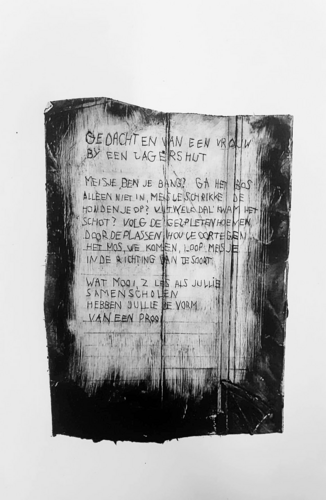 GEDACHTEN VAN EEN VROUW
BIJ EEN JAGERSHUT
MEISJE, BEN JE BANG? GA HET BOS
ALLEEN NIET IN, MEISJE, SCHRIKKE DE
HONDEN JE OP? UIT WELK DAL KWAM HET
SCHOT? VOLG DE GESPLETEN HOEVEN
DOOR DE PLASSEN, HOU JE OOR TEGEN
HET MOS, WE KOMEN, LOOP MEISJE
IN DE RICHTING VAN JE SOORT.
WAT MOOI, ZELFS ALS JULLIE
SAMENSCHOLEN
HEBBEN JULLIE DE VORM
VAN EEN PROOI